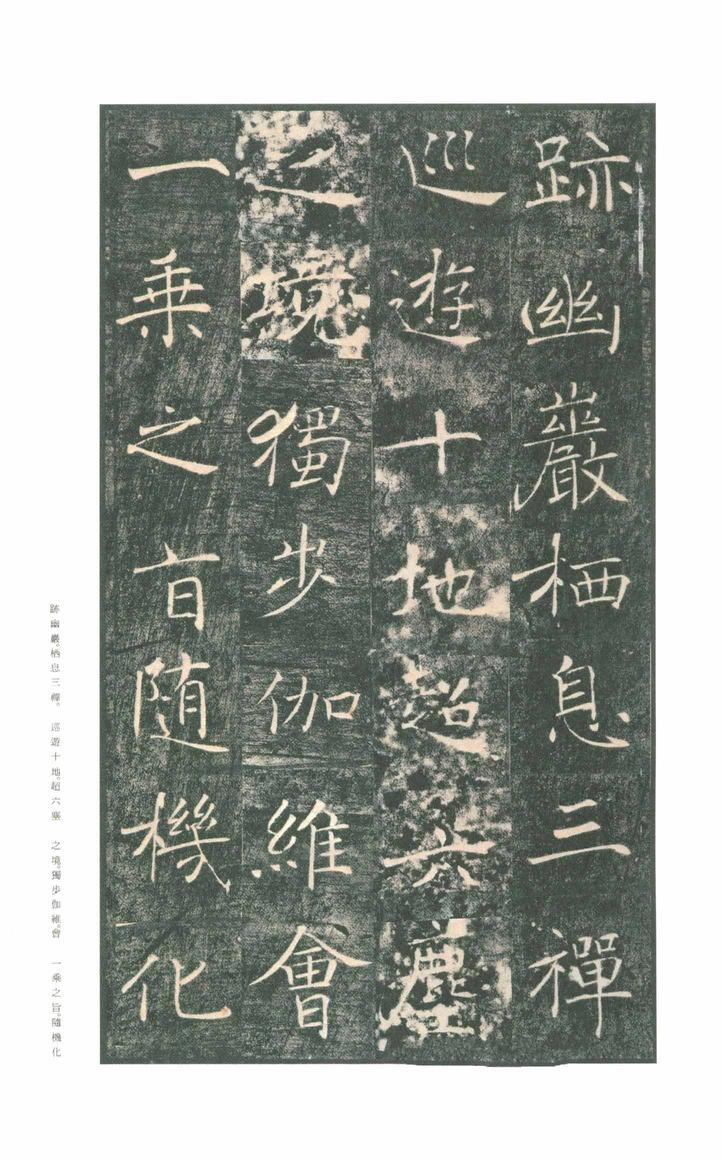 跡幽巖栖息三禪
巡遊十地超六塵
之境獨步伽維會
一乘之旨隨機化
跡幽巖。栖息三禪。 巡遊十地。超六塵 之境。獨步伽維。會 一乘之旨。隨機化